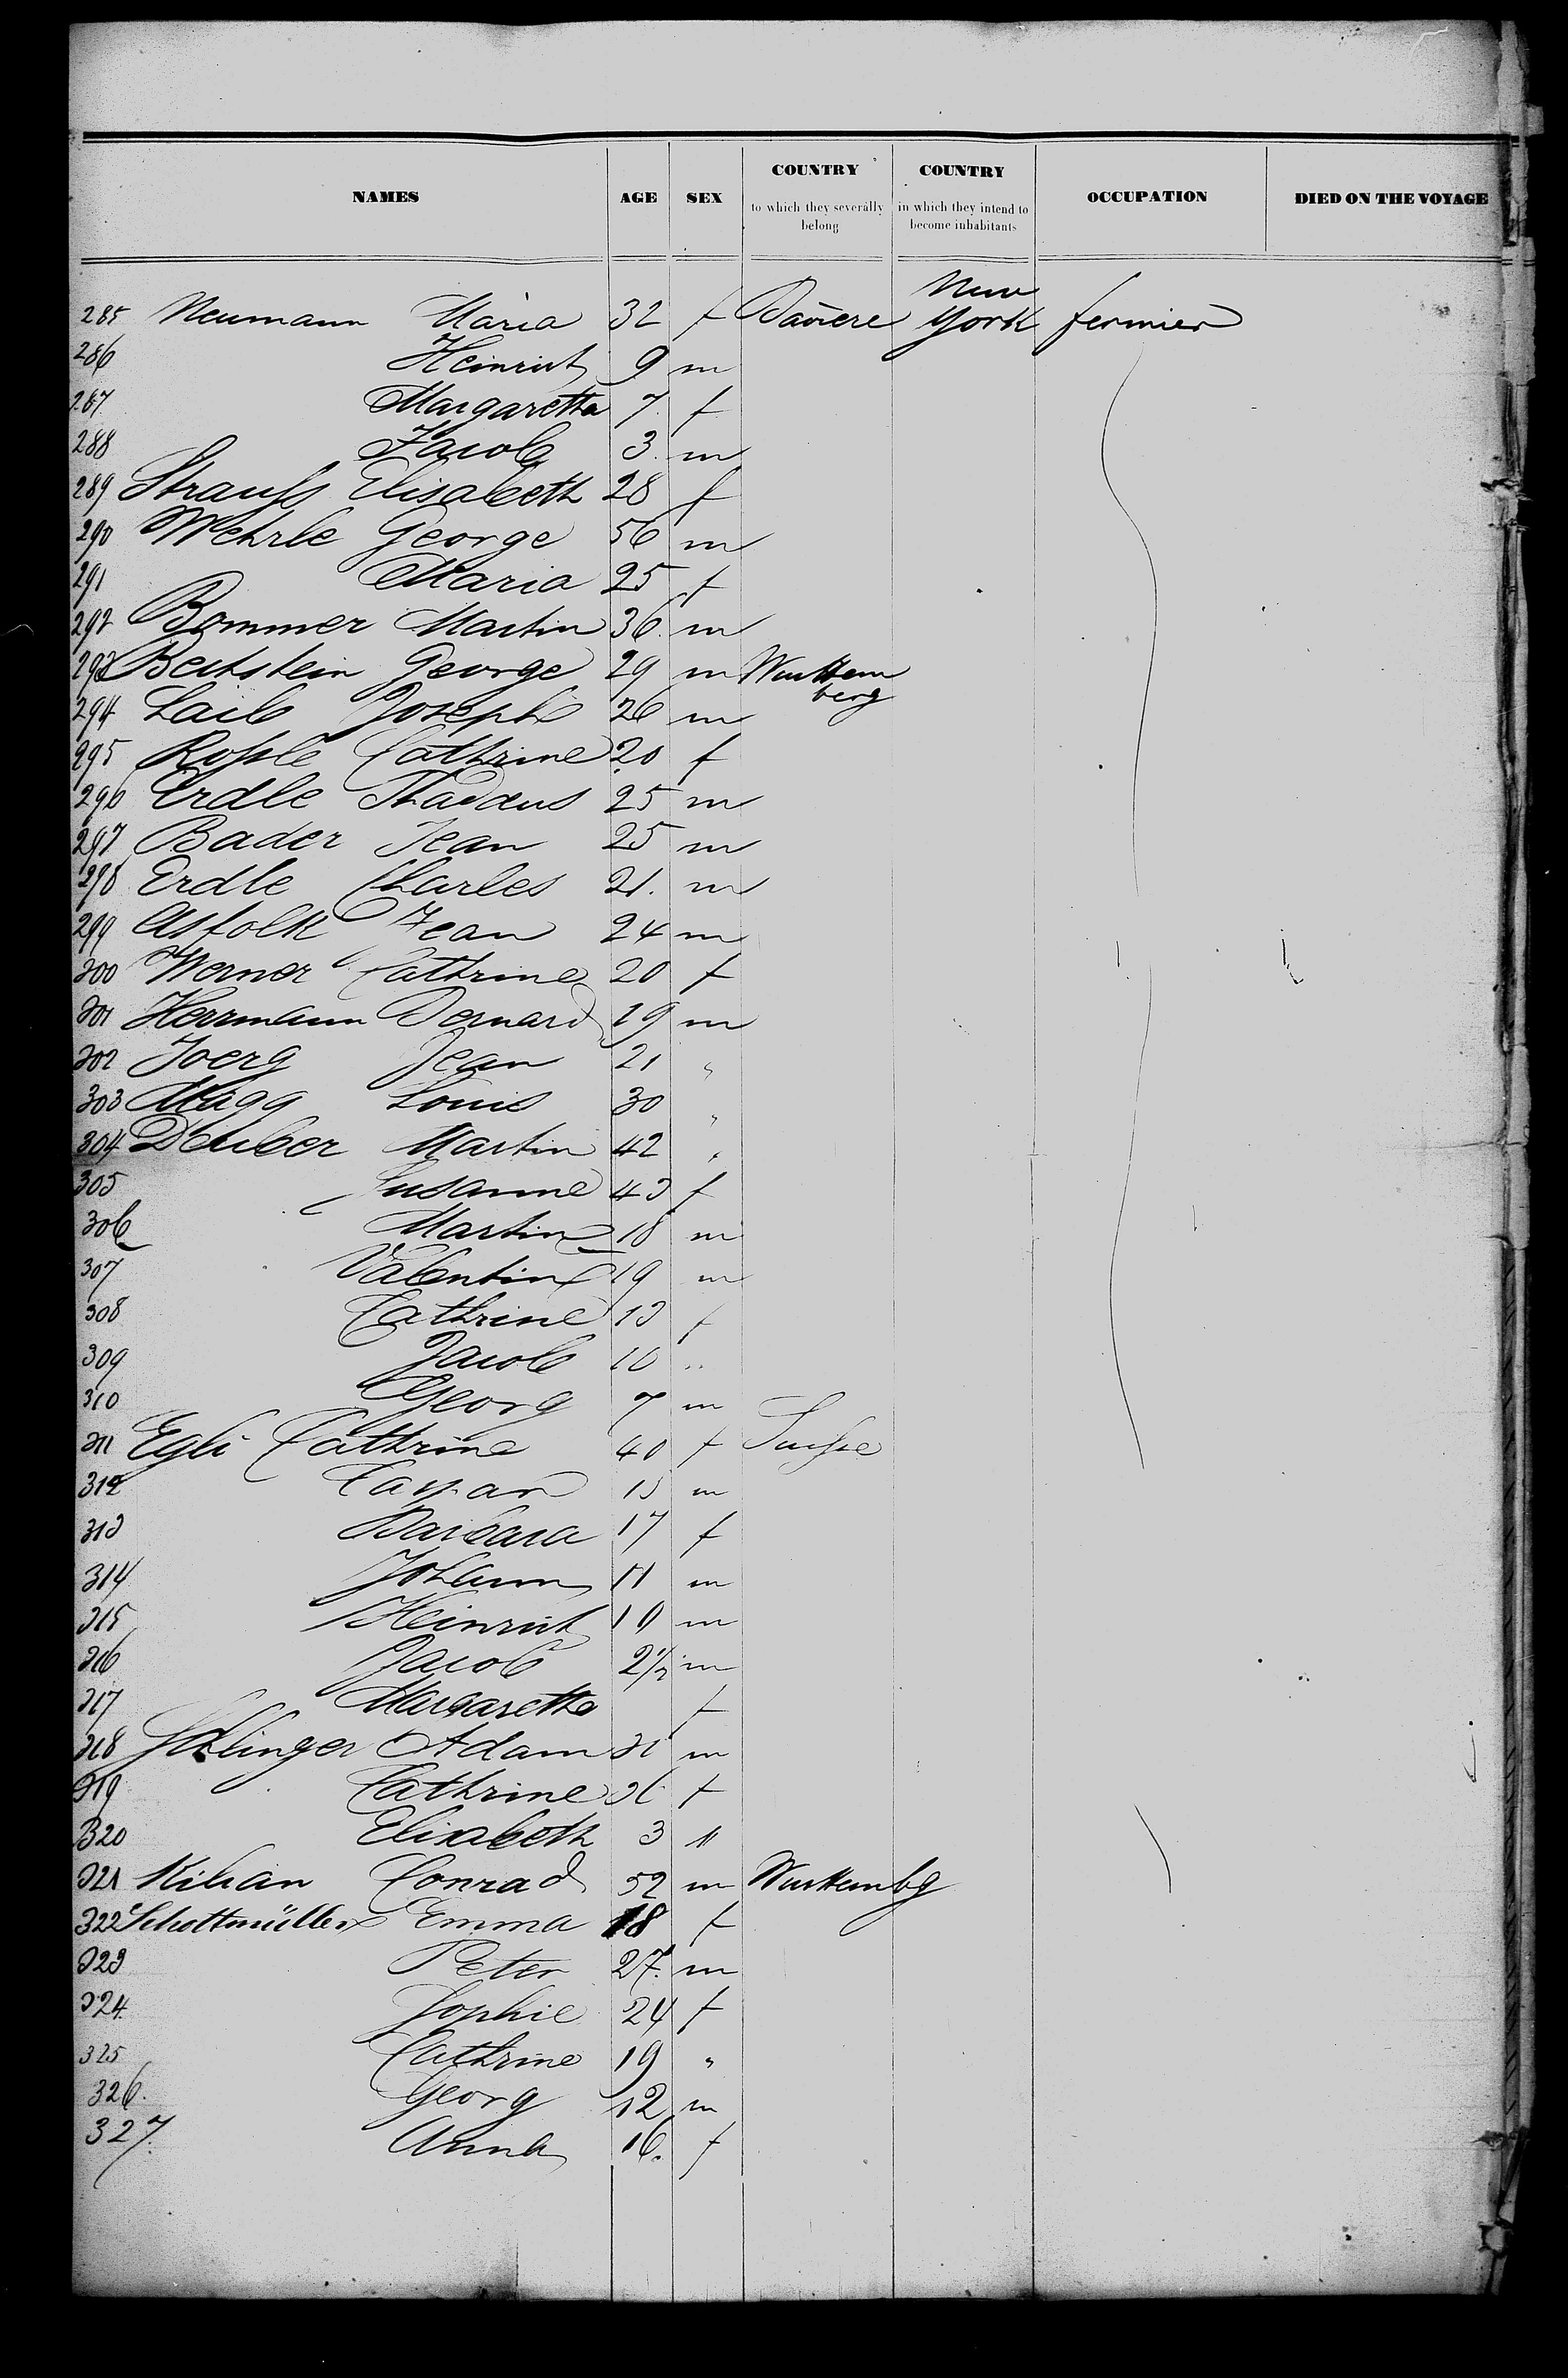 NAMES AGE SEX COUNTRY to which they severally belong COUNTRY in which they intend to become inhabitants OCCUPATION DIED ON THE VOYAGE
285 Neumann Maria 32 f Baviere New York fermier
286 Heinrich 9 m
287 Margaretha 7 f
288 Jacob 3 m
289 Strauß Elisabeth 28 f
290 Wehrle George 56 m
291 Maria 25 f
292 Bommer Martin 36 m
293 Beitstein George 29 m Wurttemberg
294 Laib Joseph 26 m
295 Roßle Cathrine 20 f
296 Erdle Thadaus 25 m
297 Bader Jean 25 m
298 Erdle Charles 21. m
299 Asfolk Jean 24 m
300 Werner Cathrine 20 f
301 Herrmann Bernard 19 m
302 Joerg Jean 21 "
303 Magg Louis 30 "
304 Deuber Martin 42 "
305 Susanne 43 f
306 Martin 18 m
307 Valentin 19 m
308 Cathrine 13 f
309 Jacob 10 "
310 Georg 7 m
311 Egli Cathrine 40 f Suiße
312 Caspar 15 m
313 Barbara 17 f
314 Johann 11 m
315 Heinrich 10 m
316 Jacob 2½ m
317 Margaretha f
318 Adam 31 m
319 Cathrine f
320 Elisabeth 3 "
321 Kilian Conrad 52 m Wurttembg
322 Schottmüller Emma 18 f
323 Peter 27. m
324 Sophie 24 f
325 Cathrine 19 "
326. Georg 12 m
327. Anna 16. f